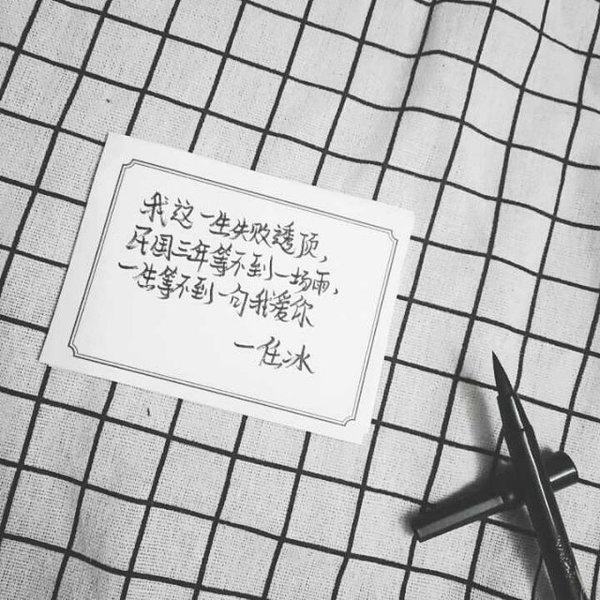 我这一生失败透顶，
民国三年等不到一场雨，
一生等不到一句我爱你
一任冰